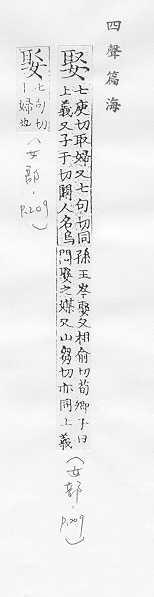 四聲篇海
娶
七庾切取婦又七句切同孫王岑娶又相俞切荀卿子曰
上義又子于切闕人名烏問娶之媒又山芻切亦同上義
(女部.p.209)
娶
七句切
丨婦也
(女部.p.209)